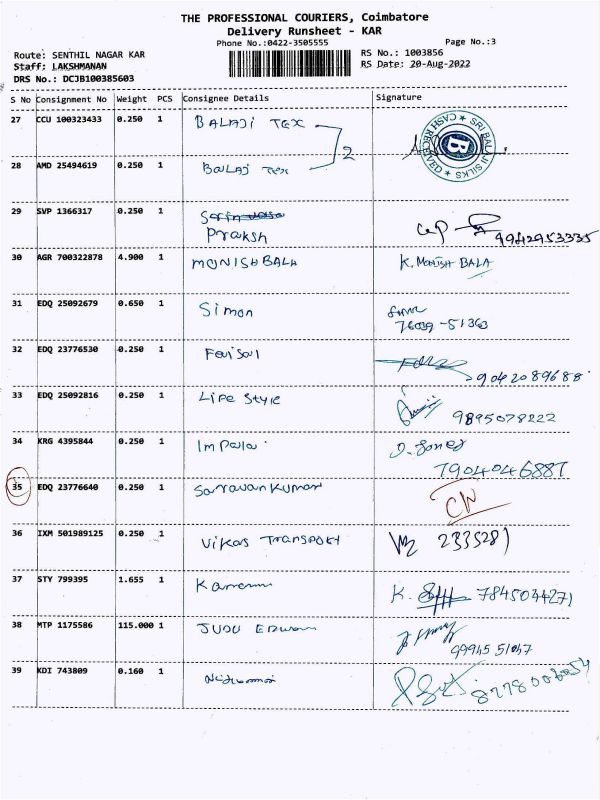 THE PROFESSIONAL COURIERS, Coimbatore
Delivery Runsheet - KAR
Phone No.:0422-3505555 Page No.:3
Route: SENTHIL NAGAR KAR RS No.: 1003856
Staff: LAKSHMANAN RS Date: 20-Aug-2022
DRS No.: DCJB100385603
S No Consignment No Weight PCS Consignee Details Signature
27 CCU 100323433 0.250 1 BALAJI TEX
2
SRI BALAJI SILKS ★ CASH RECEIVED ★ B
28 AMD 25494619 0.250 1 BALAJ TEX
29 SVP 1366317 0.250 1
Praksh 9942953335
30 AGR 700322878 4.900 1 MONISHBALA K. MONISH BALA
31 EDQ 25092679 0.650 1 Simon
76039-51363
32 EDQ 23776530 0.250 1 Faisal
9042089688
33 EDQ 25092816 0.250 1 Life Style
9895078222
34 KRG 4395844 0.250 1 Impala
7904046887
35 EDQ 23776640 0.250 1 Saravankumar CN
36 IXM 501989125 0.250 1 Vikas Transport 2335281
37 STY 799395 1.655 1 K. 7845034271
38 MTP 1175586 115.000 1 JUDU
99945 51047
39 KDI 743809 0.160 1